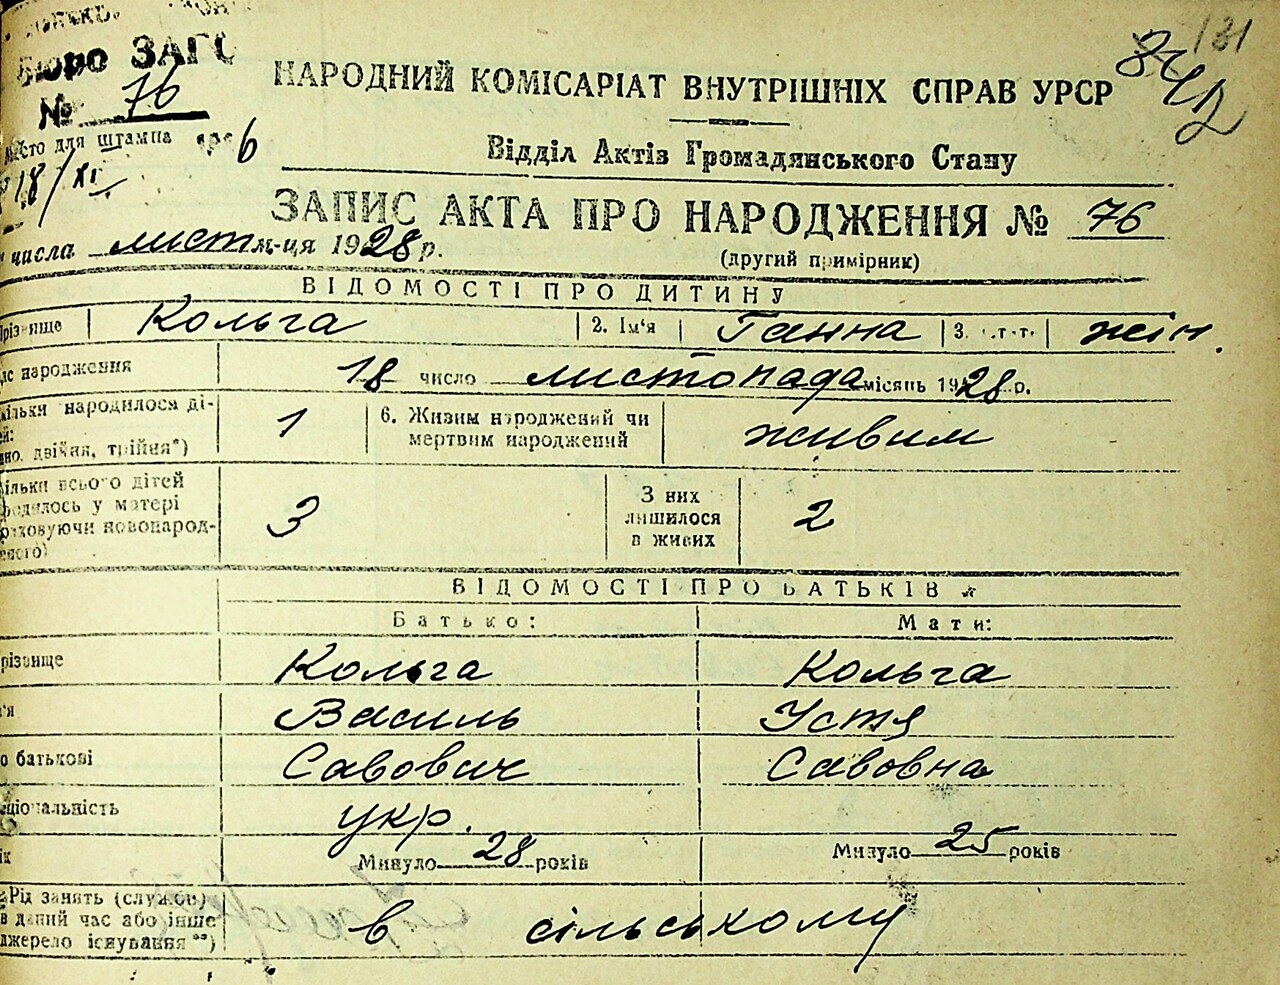 131
84
42
Бюро ЗАГС
№ 76
НАРОДНИЙ КОМІСАРІАТ ВНУТРІШНІХ СПРАВ УРСР
Місто для штампа
6
18/XI
Відділ Актів Громадянського Стану
ЗАПИС АКТА ПРО НАРОДЖЕННЯ № 76
числа лист м-ця 1928 р.
(другий примірник)
ВІДОМОСТІ ПРО ДИТИНУ
різвище Кольга 2. Ім'я Ганна 3. жін.
народження 18 число листопада місяць 1928 р.
кільки народилося ді-
ей: 1 6. Живим народжений чи
но, двійня, трійня*) мертвим народжений живим
ільки всього дітей
родилось у матері
раховуючи новонарод-
еного) 3 З них
лишилося
в живих 2
ВІДОМОСТІ ПРО БАТЬКІВ
Батько: Мати:
різвище Кольга Кольга
м'я Василь Устя
о батькові Савович Савовна
аціональність укр.
ік Минуло 28 років Минуло 25 років
Рід занять (служби)
в даний час або інше
джерело існування**) в сільському